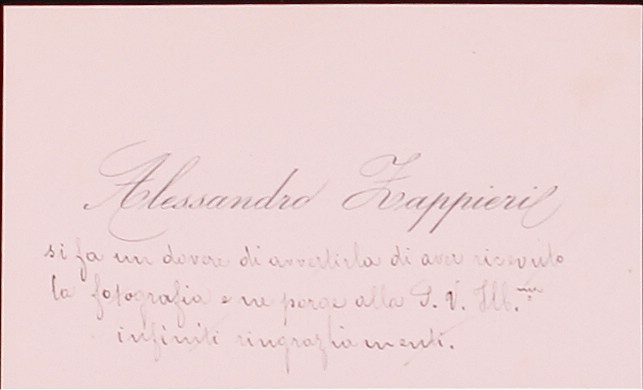 Alessandro Zappieri
si fa un dovere di avvertirla di aver ricevuto
la fotografia e ne porge alla S. V. Ill.ma
infiniti ringraziamenti.